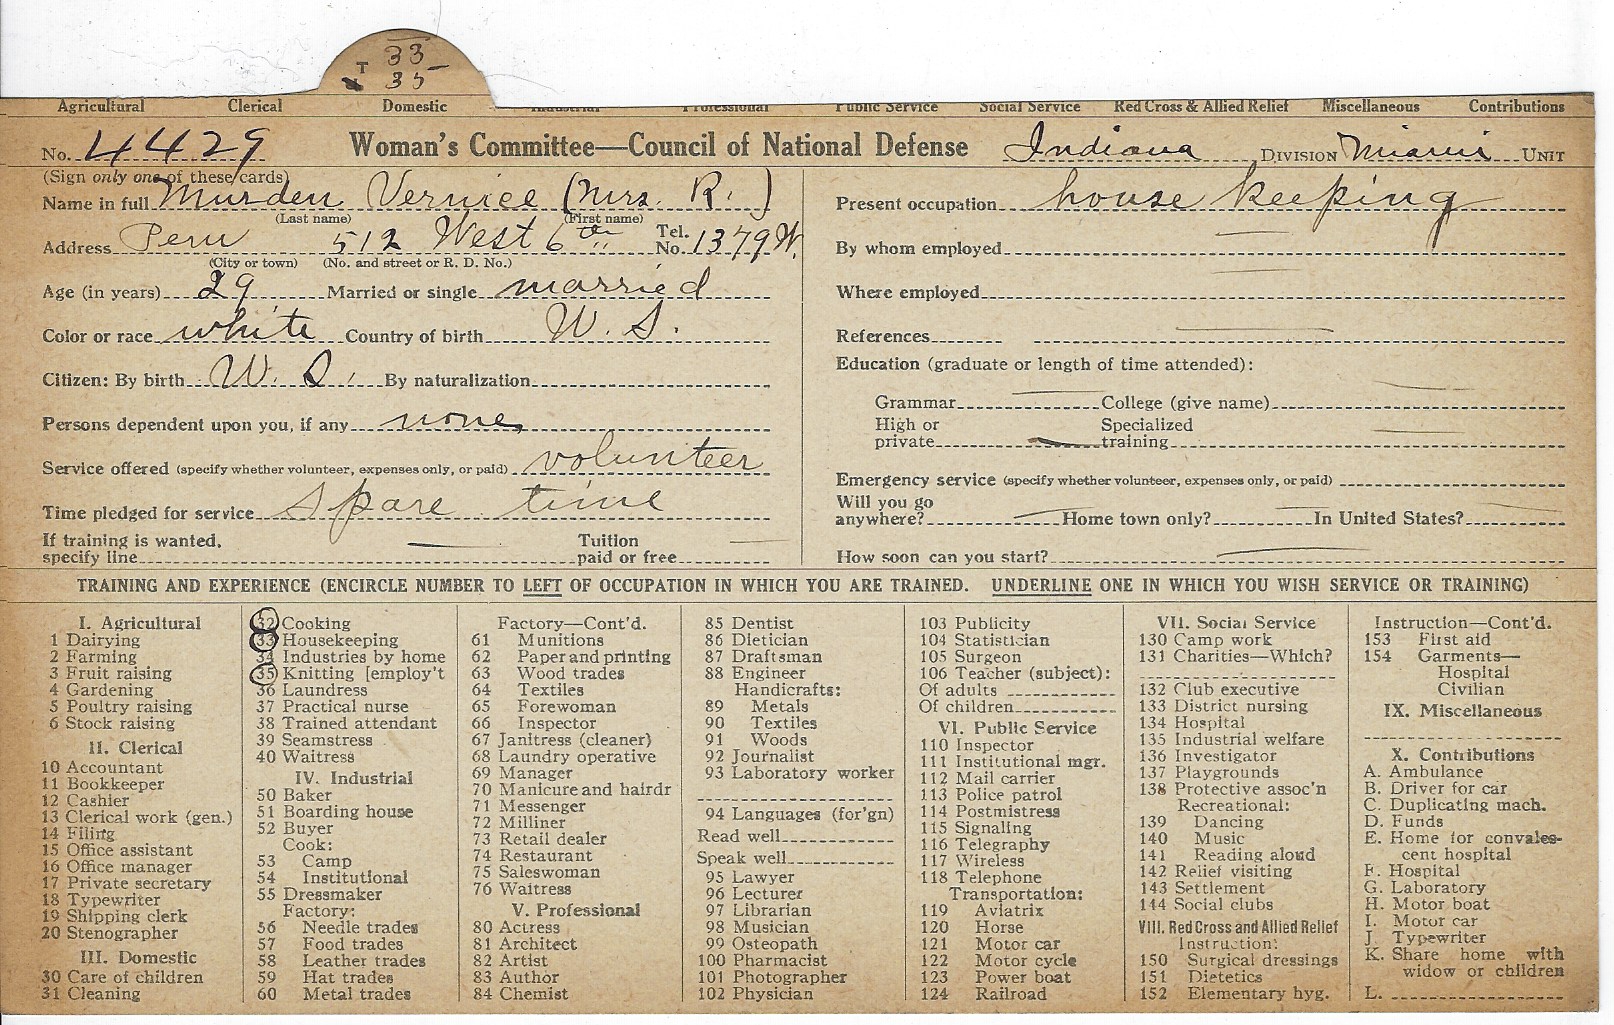 33
T 35
Agricultural Clerical Domestic Industrial Professional Public Service Social Service Red Cross & Allied Relief Miscellaneous Contributions
No. 4429 Woman's Committee—Council of National Defense Indiana DIVISION Miami UNIT
(Sign only one of these cards)
Name in full Murden Vernice (Mrs. R. )
(Last name) (First name)
Address Peru 512 West 6th Tel. No. 1379 W.
(City or town) (No. and street or R. D. No.)
Age (in years) 29 Married or single married
Color or race white Country of birth U. S.
Citizen: By birth U. S. By naturalization
Persons dependent upon you, if any none
Service offered (specify whether volunteer, expenses only, or paid) volunteer
Time pledged for service spare time
If training is wanted, specify line Tuition paid or free
Present occupation house keeping
By whom employed
Where employed
References
Education (graduate or length of time attended):
Grammar College (give name)
High or private Specialized training
Emergency service (specify whether volunteer, expenses only, or paid)
Will you go anywhere? Home town only? In United States?
How soon can you start?
TRAINING AND EXPERIENCE (ENCIRCLE NUMBER TO LEFT OF OCCUPATION IN WHICH YOU ARE TRAINED. UNDERLINE ONE IN WHICH YOU WISH SERVICE OR TRAINING)
I. Agricultural
1 Dairying
2 Farming
3 Fruit raising
4 Gardening
5 Poultry raising
6 Stock raising
II. Clerical
10 Accountant
11 Bookkeeper
12 Cashier
13 Clerical work (gen.)
14 Filing
15 Office assistant
16 Office manager
17 Private secretary
18 Typewriter
19 Shipping clerk
20 Stenographer
III. Domestic
30 Care of children
31 Cleaning
32 Cooking
33 Housekeeping
34 Industries by home
35 Knitting [employ't
36 Laundress
37 Practical nurse
38 Trained attendant
39 Seamstress
40 Waitress
IV. Industrial
50 Baker
51 Boarding house
52 Buyer
Cook:
53 Camp
54 Institutional
55 Dressmaker
Factory:
56 Needle trades
57 Food trades
58 Leather trades
59 Hat trades
60 Metal trades
Factory—Cont'd.
61 Munitions
62 Paper and printing
63 Wood trades
64 Textiles
65 Forewoman
66 Inspector
67 Janitress (cleaner)
68 Laundry operative
69 Manager
70 Manicure and hairdr
71 Messenger
72 Milliner
73 Retail dealer
74 Restaurant
75 Saleswoman
76 Waitress
V. Professional
80 Actress
81 Architect
82 Artist
83 Author
84 Chemist
85 Dentist
86 Dietician
87 Draftsman
88 Engineer
Handicrafts:
89 Metals
90 Textiles
91 Woods
92 Journalist
93 Laboratory worker
94 Languages (for'gn)
Read well
Speak well
95 Lawyer
96 Lecturer
97 Librarian
98 Musician
99 Osteopath
100 Pharmacist
101 Photographer
102 Physician
103 Publicity
104 Statistician
105 Surgeon
106 Teacher (subject):
Of adults
Of children
VI. Public Service
110 Inspector
111 Institutional mgr.
112 Mail carrier
113 Police patrol
114 Postmistress
115 Signaling
116 Telegraphy
117 Wireless
118 Telephone
Transportation:
119 Aviatrix
120 Horse
121 Motor car
122 Motor cycle
123 Power boat
124 Railroad
VII. Social Service
130 Camp work
131 Charities—Which?
132 Club executive
133 District nursing
134 Hospital
135 Industrial welfare
136 Investigator
137 Playgrounds
138 Protective assoc'n
Recreational:
139 Dancing
140 Music
141 Reading aloud
142 Relief visiting
143 Settlement
144 Social clubs
VIII. Red Cross and Allied Relief
Instruction:
150 Surgical dressings
151 Dietetics
152 Elementary hyg.
Instruction—Cont'd.
153 First aid
154 Garments—
Hospital
Civilian
IX. Miscellaneous
X. Contributions
A. Ambulance
B. Driver for car
C. Duplicating mach.
D. Funds
E. Home for convales-
cent hospital
F. Hospital
G. Laboratory
H. Motor boat
I. Motor car
J. Typewriter
K. Share home with
widow or children
L.